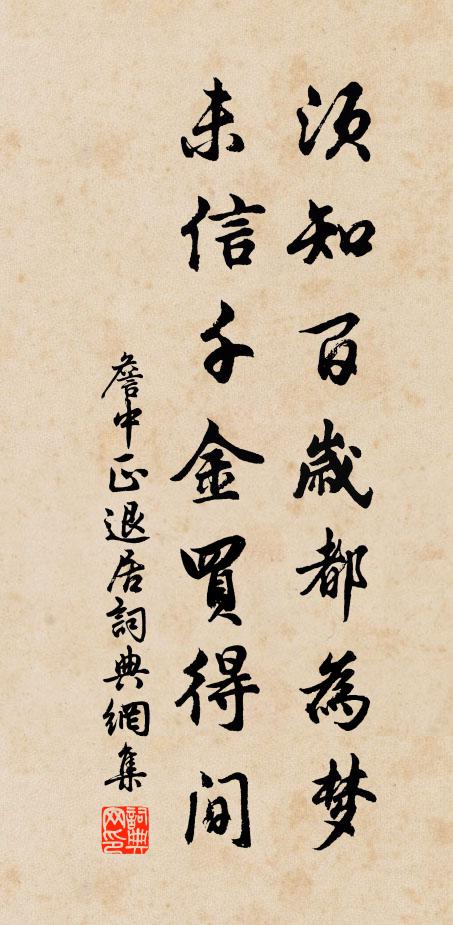 须知百歲都為梦
未信千金買得间
詹中正退居詞典網集
詞典网印